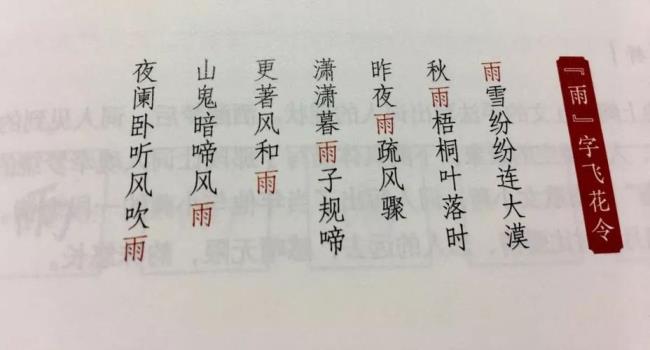 『雨』字飞花令
雨雪纷纷连大漠
秋雨梧桐叶落时
昨夜雨疏风骤
潇潇暮雨子规啼
更著风和雨
山鬼暗啼风雨
夜阑卧听风吹雨